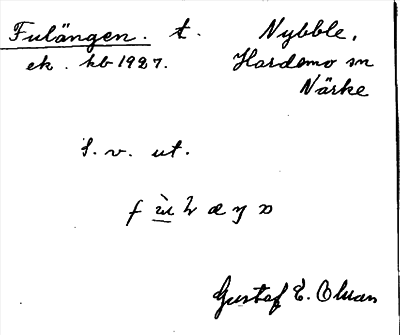 Fulängen. t. Nybble,
ek. kb 1927. Hardemo sn
Närke
S. v. ut.
Gustaf E. Olsson